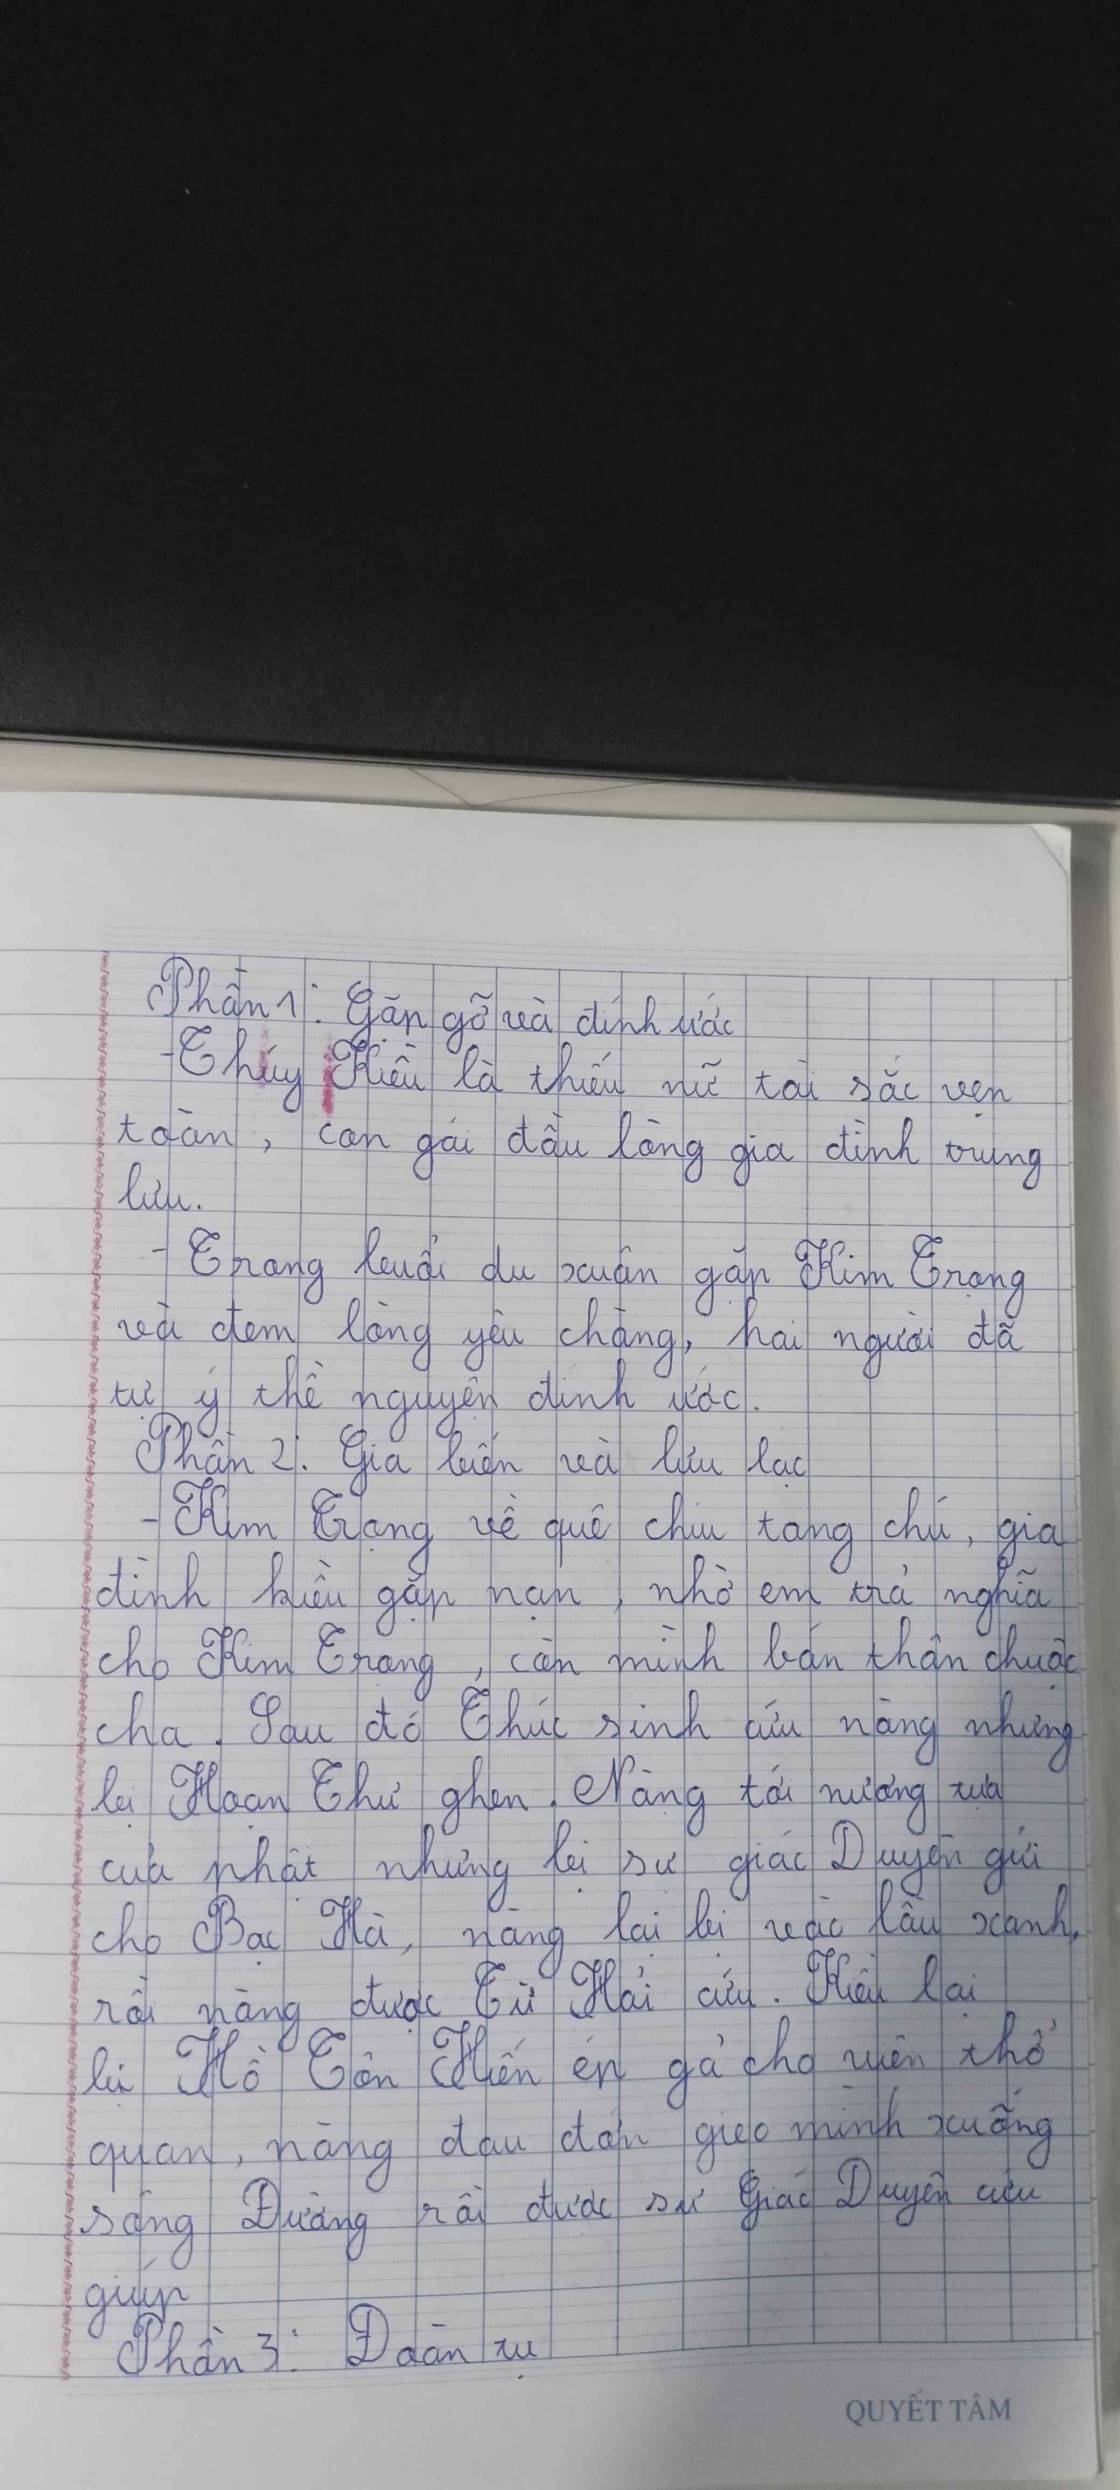 Phần 1: Gặp gỡ và đính ước
- Thúy Kiều là thiếu nữ tài sắc vẹn
toàn, con gái đầu lòng gia đình trung
lưu.
- Trong buổi du xuân gặp Kim Trọng
và đem lòng yêu chàng, hai người đã
tự ý thề nguyện đính ước.
Phần 2: Gia biến và lưu lạc
- Kim Trọng về quê chịu tang chú, gia
đình kiều gặp nạn, nhờ em trả nghĩa
cho Kim Trọng, còn mình bán thân chuộc
cha. Sau đó Thúc sinh cứu nàng nhưng
bị Hoạn Thư ghen. Nàng tới nương tựa
cửa phật nhưng bị sư giác Duyên gửi
cho Bạc Hà, nàng lại bị vào lầu xanh,
rồi nàng được Từ Hải cứu. Kiều lại
bị Hồ Tôn Hiến ép gả cho viên thổ
quan, nàng đau đớn gieo mình xuống
sông Đường rồi được sư Giác Duyên cứu
giúp
Phần 3: Đoàn tụ
QUYẾT TÂM